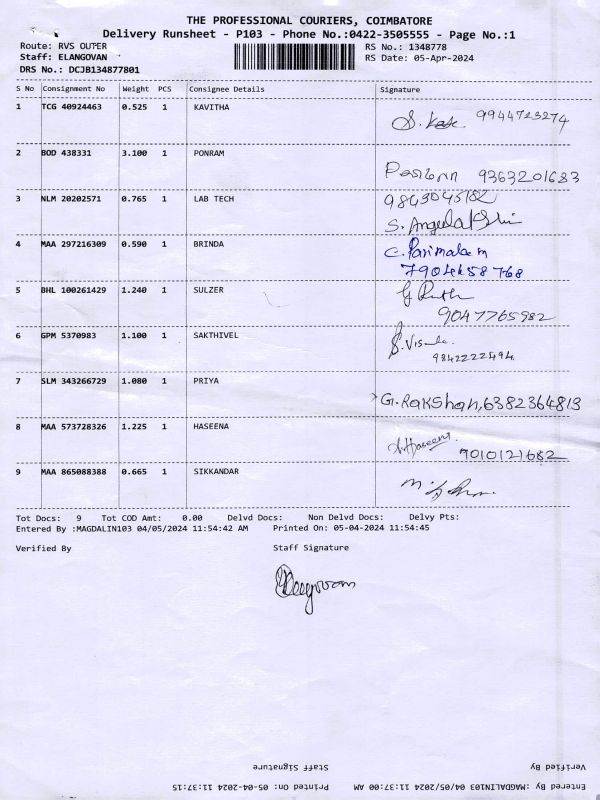 THE PROFESSIONAL COURIERS, COIMBATORE
Delivery Runsheet - P103 - Phone No.:0422-3505555 - Page No.:1
Route: RVS OUTER RS No.: 1348778
Staff: ELANGOVAN RS Date: 05-Apr-2024
DRS No.: DCJB134877801
S No Consignment No Weight PCS Consignee Details Signature
1 TCG 40924463 0.525 1 KAVITHA
9944723274
2 BOD 438331 3.100 1 PONRAM
9363201683
3 NLM 20202571 0.765 1 LAB TECH
4 MAA 297216309 0.590 1 BRINDA
C. Parimalam
5 BHL 100261429 1.240 1 SULZER
9047765982
6 GPM 5370983 1.100 1 SAKTHIVEL
9842222494
7 SLM 343266729 1.080 1 PRIYA
G.Rakshan,6382364813
8 MAA 573728326 1.225 1 HASEENA
7010121682
9 MAA 865088388 0.665 1 SIKKANDAR
Tot Docs: 9 Tot COD Amt: 0.00 Delvd Docs: Non Delvd Docs: Delvy Pts:
Entered By :MAGDALIN103 04/05/2024 11:54:42 AM Printed On: 05-04-2024 11:54:45
Verified By Staff Signature
Verified By Staff Signature
Entered By :MAGDALIN103 04/05/2024 11:37:00 AM Printed On: 05-04-2024 11:37:15